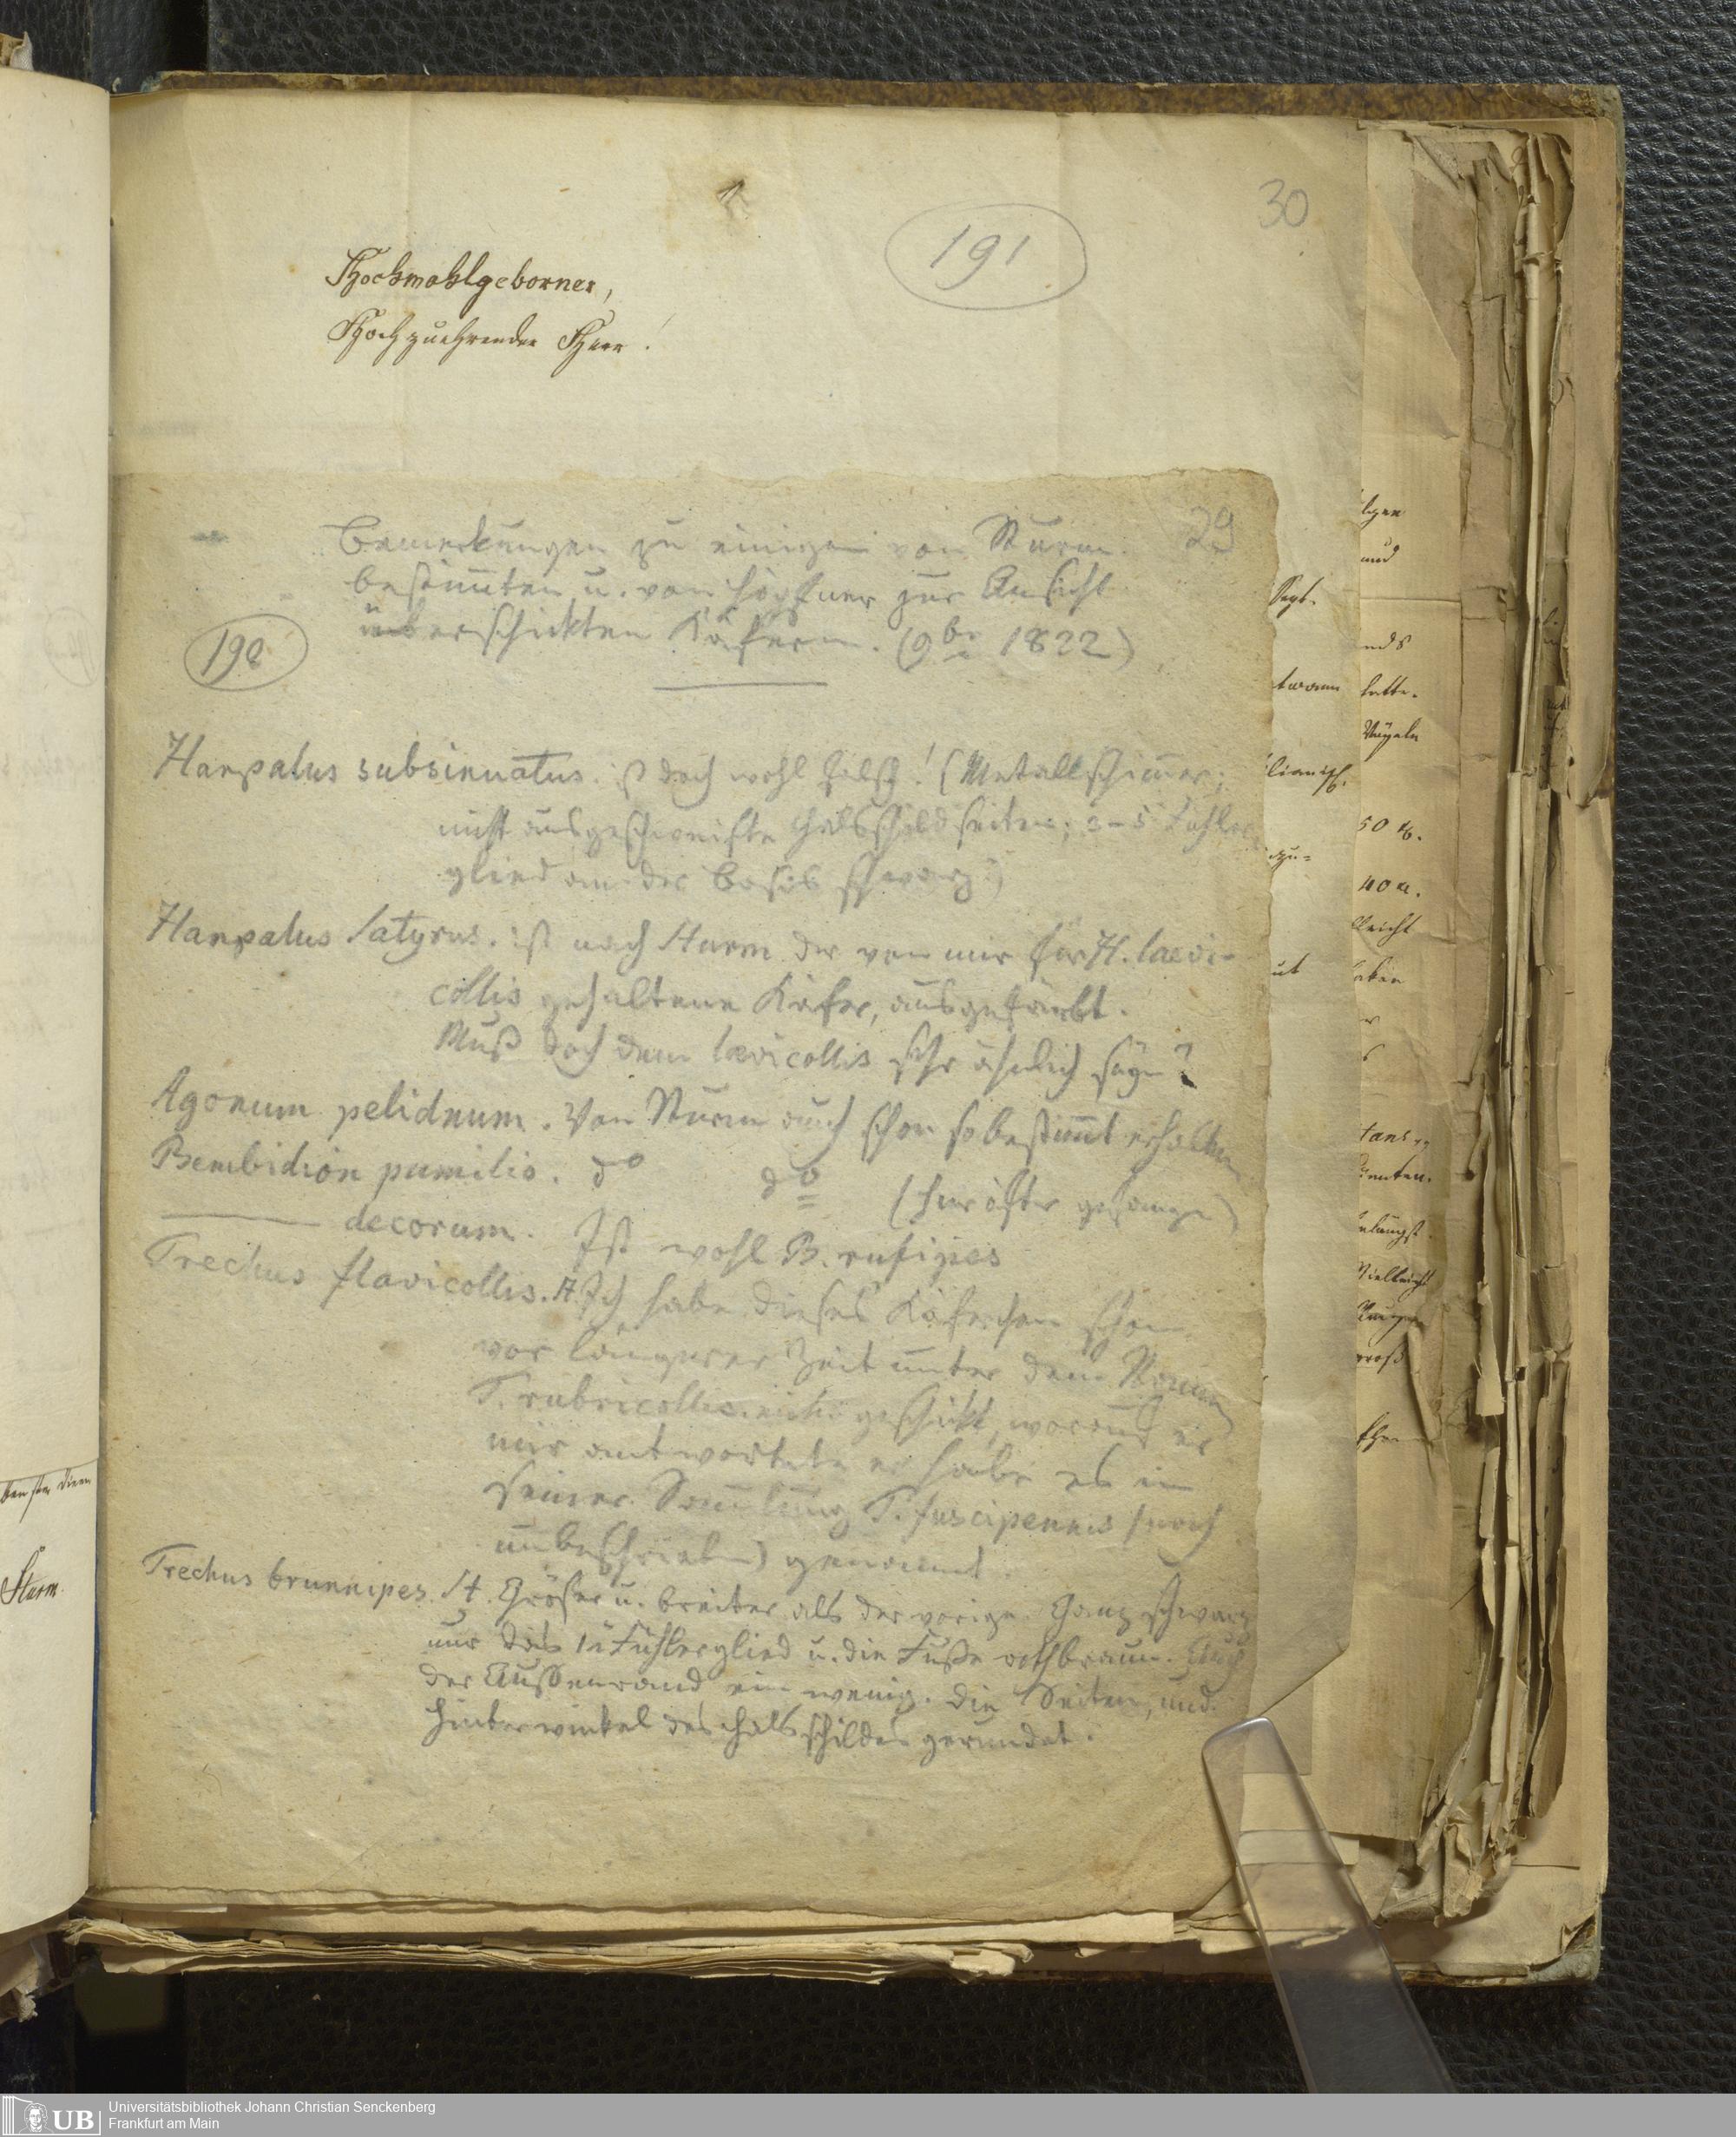 30
191
Hochwohlgeborner,
Hochzuehrender Herr!
29
Bemerkungen zu einigen von Sturm
bestimmten u. von Höpfner zur Ansicht
überschickten Käfern. (9br 1822)
190
Harpalus subsinuatus. ist doch wohl falsch! (Metallschimmer;
nicht ausgeschweifte Halsschildseiten; 2-5 Fühler
glied an der Basis schwarz)
Harpalus Satyrus. ist nach Sturm der von mir für H. laevi-
collis gehaltene Käfer, ausgefärbt.
Muß doch dem laevicollis sehr ähnlich seyn?
Agonum pelidnum. Von Sturm auch schon so bestimmt erhalten
Bembidion pumilio. do do (hier öfter gefangen)
decorum. Ist wohl B. rufipes
Trechus flavicollis. St. Ich habe dieses Käferchen schon
vor längerer Zeit unter dem Namen
T. rubricollis geschickt, worauf er
mir antwortete er habe es in
seiner Sammlung T. fuscipennis (noch
unbeschrieben) genannt.
Trechus brunnipes. St. Größer u. breiter als der vorige. Ganz schwarz
nur das 1te Fühlerglied u. die Fuße rothbraun. Auch
der Aussenrand ein wenig. Die Seiten, und
Hinterwinkel des Halsschildes gerundet.
Sept.
und
hatte.
Vögeln
50 x.
40 x.
Vielleicht
groß
Sturm.
UB
Universitätsbibliothek Johann Christian Senckenberg
Frankfurt am Main